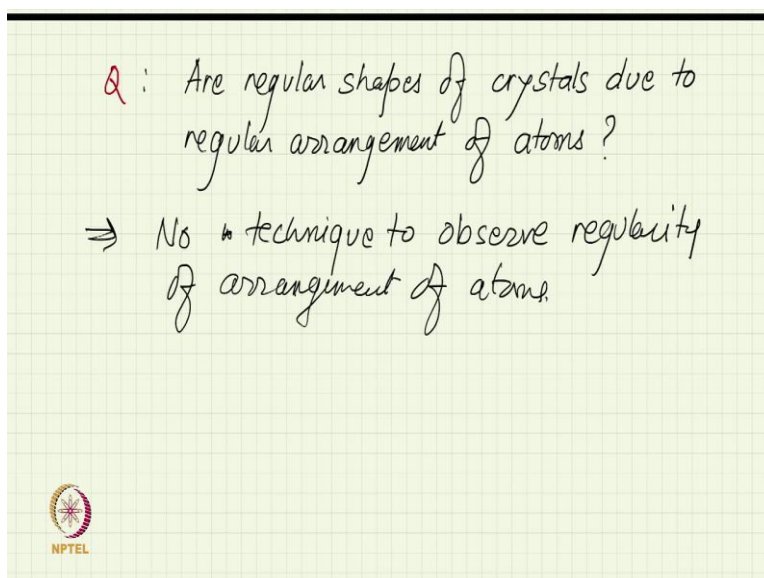 Q: Are regular shapes of crystals due to
regular arrangement of atoms?
⇒ No technique to observe regularity
of arrangement of atoms.
NPTEL